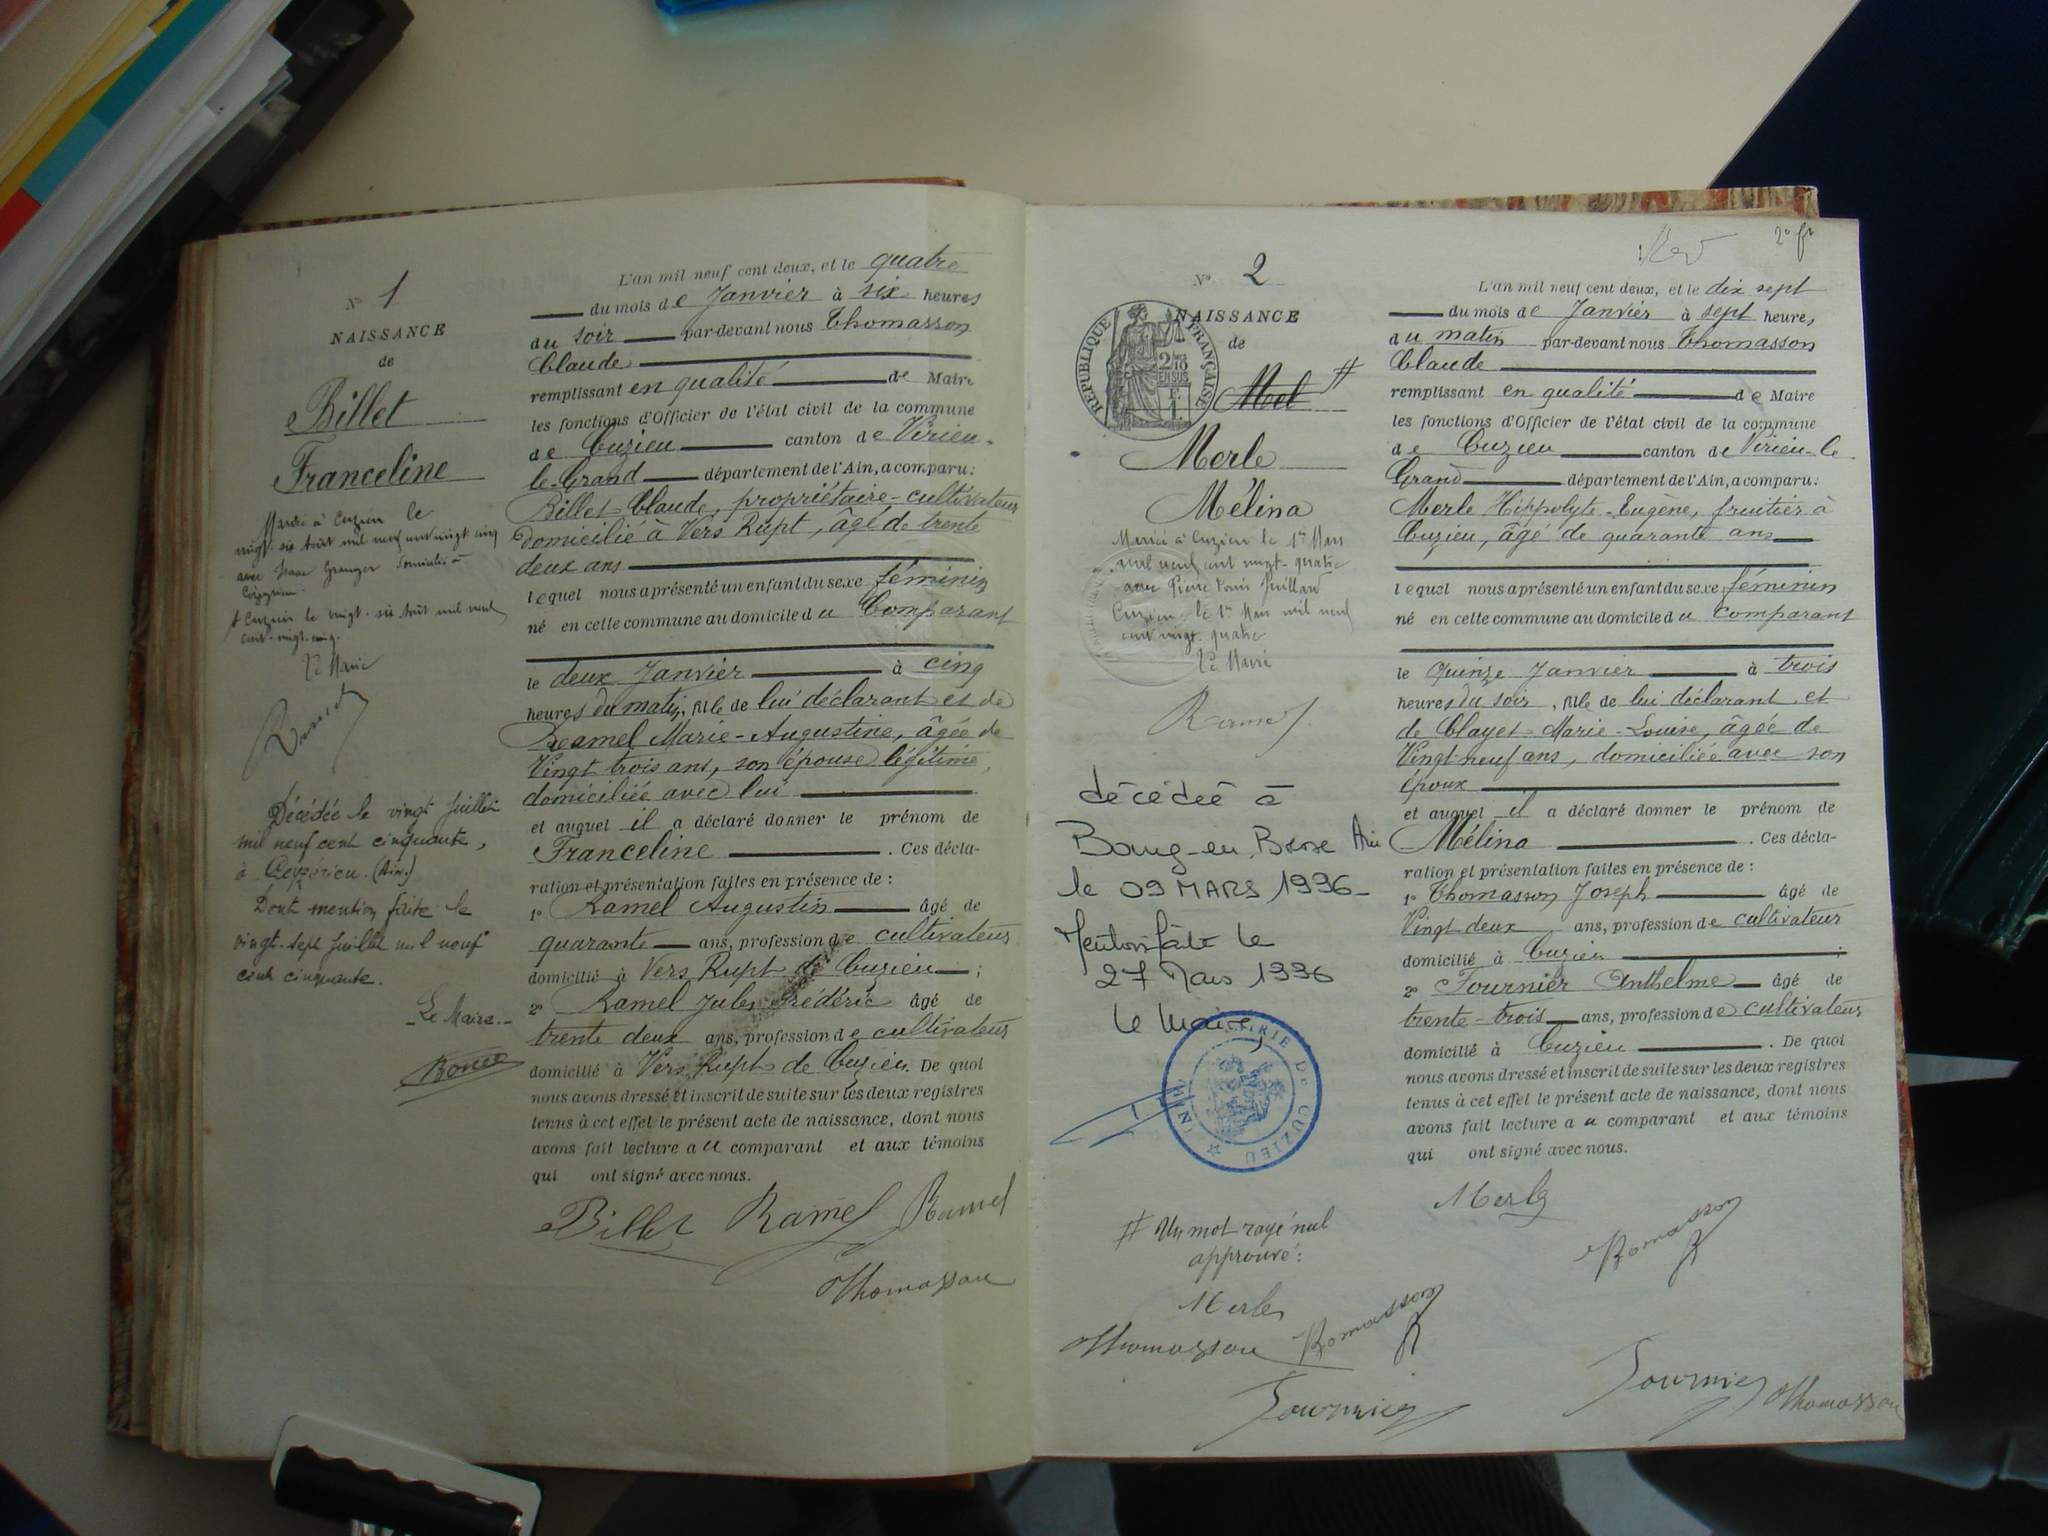 N° 1
NAISSANCE
de
Billet
Franceline
Mariée à Cuzieu le
vingt-six août mil neuf cent vingt cinq
avec Isaac Granger domicilié à
Ceyzérieu.
Cuzieu le vingt-six août mil neuf
cent vingt-cinq.
Le Maire
Ramel
Décédée le vingt juillet
mil neuf cent cinquante,
à Ceyzérieu. (Ain.)
Dont mention faite le
vingt-sept juillet mil neuf
cent cinquante.
Le Maire.
L'an mil neuf cent deux, et le quatre
du mois de Janvier à six heures
du soir par-devant nous Thomasson
Claude
remplissant en qualité de Maire
les fonctions d'Officier de l'état civil de la commune
de Cuzieu canton de Virieu-
le-Grand département de l'Ain, a comparu:
Billet Claude, propriétaire-cultivateur
domicilié à Vers Rupt, âgé de trente
deux ans
lequel nous a présenté un enfant du sexe féminin
né en cette commune au domicile du Comparant
le deux Janvier à cinq
heures du matin, fille de lui déclarant et de
Ramel Marie-Augustine, âgée de
Vingt trois ans, son épouse légitime,
domiciliée avec lui
et auquel il a déclaré donner le prénom de
Franceline . Ces décla-
ration et présentation faites en présence de :
1° Ramel Augustin âgé de
quarante ans, profession de cultivateur
domicilié à Vers Rupt de Cuzieu ;
2° Ramel Jules Frédéric âgé de
trente deux ans, profession de cultivateur
domicilié à Vers Rupt de Cuzieu. De quoi
nous avons dressé et inscrit de suite sur les deux registres
tenus à cet effet le présent acte de naissance, dont nous
avons fait lecture au comparant et aux témoins
qui ont signé avec nous.
Billet Ramel Ramel
Thomasson
2e ft
N° 2
NAISSANCE
de
RÉPUBLIQUE FRANÇAISE
2/10 EN SUS
1 F.
Mel #
Merle
Mélina
Mariée à Cuzieu le 1er Mars
mil neuf cent vingt-quatre
avec Pierre Louis Juillard
Cuzieu le 1er Mars mil neuf
cent vingt-quatre
Le Maire
Ramel
décédée à
Bourg-en-Bresse Ain
le 09 MARS 1996
Mention faite le
27 Mars 1996
Le Maire,
MAIRIE DE CUZIEU (AIN)
# Un mot rayé nul
approuvé :
Merle
Thomasson Thomasson
Fournier
L'an mil neuf cent deux, et le dix sept
du mois de Janvier à sept heures
du matin par-devant nous Thomasson
Claude
remplissant en qualité de Maire
les fonctions d'Officier de l'état civil de la commune
de Cuzieu canton de Virieu-le
Grand département de l'Ain, a comparu:
Merle Hippolyte-Eugène, fruitier à
Cuzieu, âgé de quarante ans
lequel nous a présenté un enfant du sexe féminin
né en cette commune au domicile du comparant
le Quinze Janvier à trois
heures du soir, fille de lui déclarant et
de Clayet Marie-Louise, âgée de
Vingt neuf ans, domiciliée avec son
époux
et auquel il a déclaré donner le prénom de
Mélina . Ces décla-
ration et présentation faites en présence de :
1° Thomasson Joseph âgé de
Vingt deux ans, profession de cultivateur
domicilié à Cuzieu ;
2° Fournier Anthelme âgé de
trente-trois ans, profession de cultivateur
domicilié à Cuzieu . De quoi
nous avons dressé et inscrit de suite sur les deux registres
tenus à cet effet le présent acte de naissance, dont nous
avons fait lecture au comparant et aux témoins
qui ont signé avec nous.
Merle
Thomasson
Fournier Thomasson